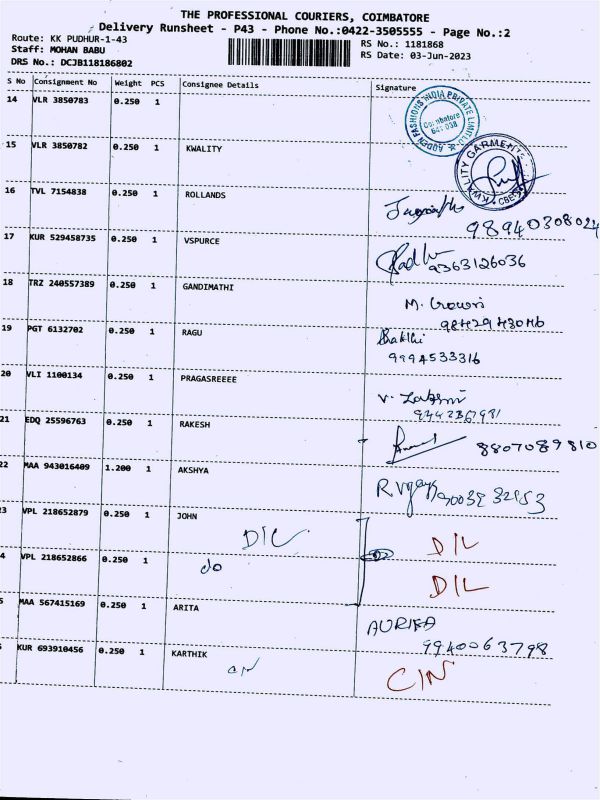 THE PROFESSIONAL COURIERS, COIMBATORE
Delivery Runsheet - P43 - Phone No.:0422-3505555 - Page No.:2
Route: KK PUDHUR-1-43
Staff: MOHAN BABU
DRS No.: DCJB118186802
RS No.: 1181868
RS Date: 03-Jun-2023
S No Consignment No Weight PCS Consignee Details Signature
14 VLR 3850783 0.250 1
Coimbatore
641 038
15 VLR 3850782 0.250 1 KWALITY
KWALITY GARMENTS
CBE
16 TVL 7154838 0.250 1 ROLLANDS
9894030802
17 KUR 529458735 0.250 1 VSPURCE
9363126036
18 TRZ 240557389 0.250 1 GANDIMATHI
M. Gowri
19 PGT 6132702 0.250 1 RAGU
9994533316
20 VLI 1100134 0.250 1 PRAGASREEEE
21 EDQ 25596763 0.250 1 RAKESH
8807089810
22 MAA 943016409 1.200 1 AKSHYA
3 VPL 218652879 0.250 1 JOHN
D/L D/L
4 VPL 218652866 0.250 1
do D/L
5 MAA 567415169 0.250 1 ARITA
9940063798
KUR 693910456 0.250 1 KARTHIK
C/N C/N